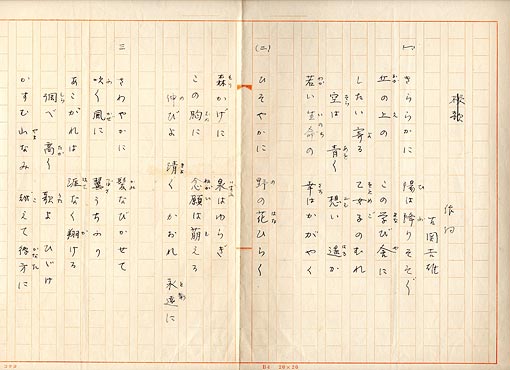 校歌
作詞
古関吉雄
(一) きららかに 陽は降りそそぐ
丘の上の この学び舎に
したい寄る 乙女子のむれ
空は 青く 想い 遥か
若い生命の 幸はかがやく
(二) ひそやかに 野の花ひらく
森かげに 泉はゆらぎ
この胸に 念願は萌える
伸びよ 清く かおれ 永遠に
三 さわやかに 髪なびかせて
吹く風に 翼うちふり
あこがれは 涯なく翔ける
調べ 高く 歌よ ひびけ
かすむ山なみ 越えて 彼方に
B4 20×20
コクヨ